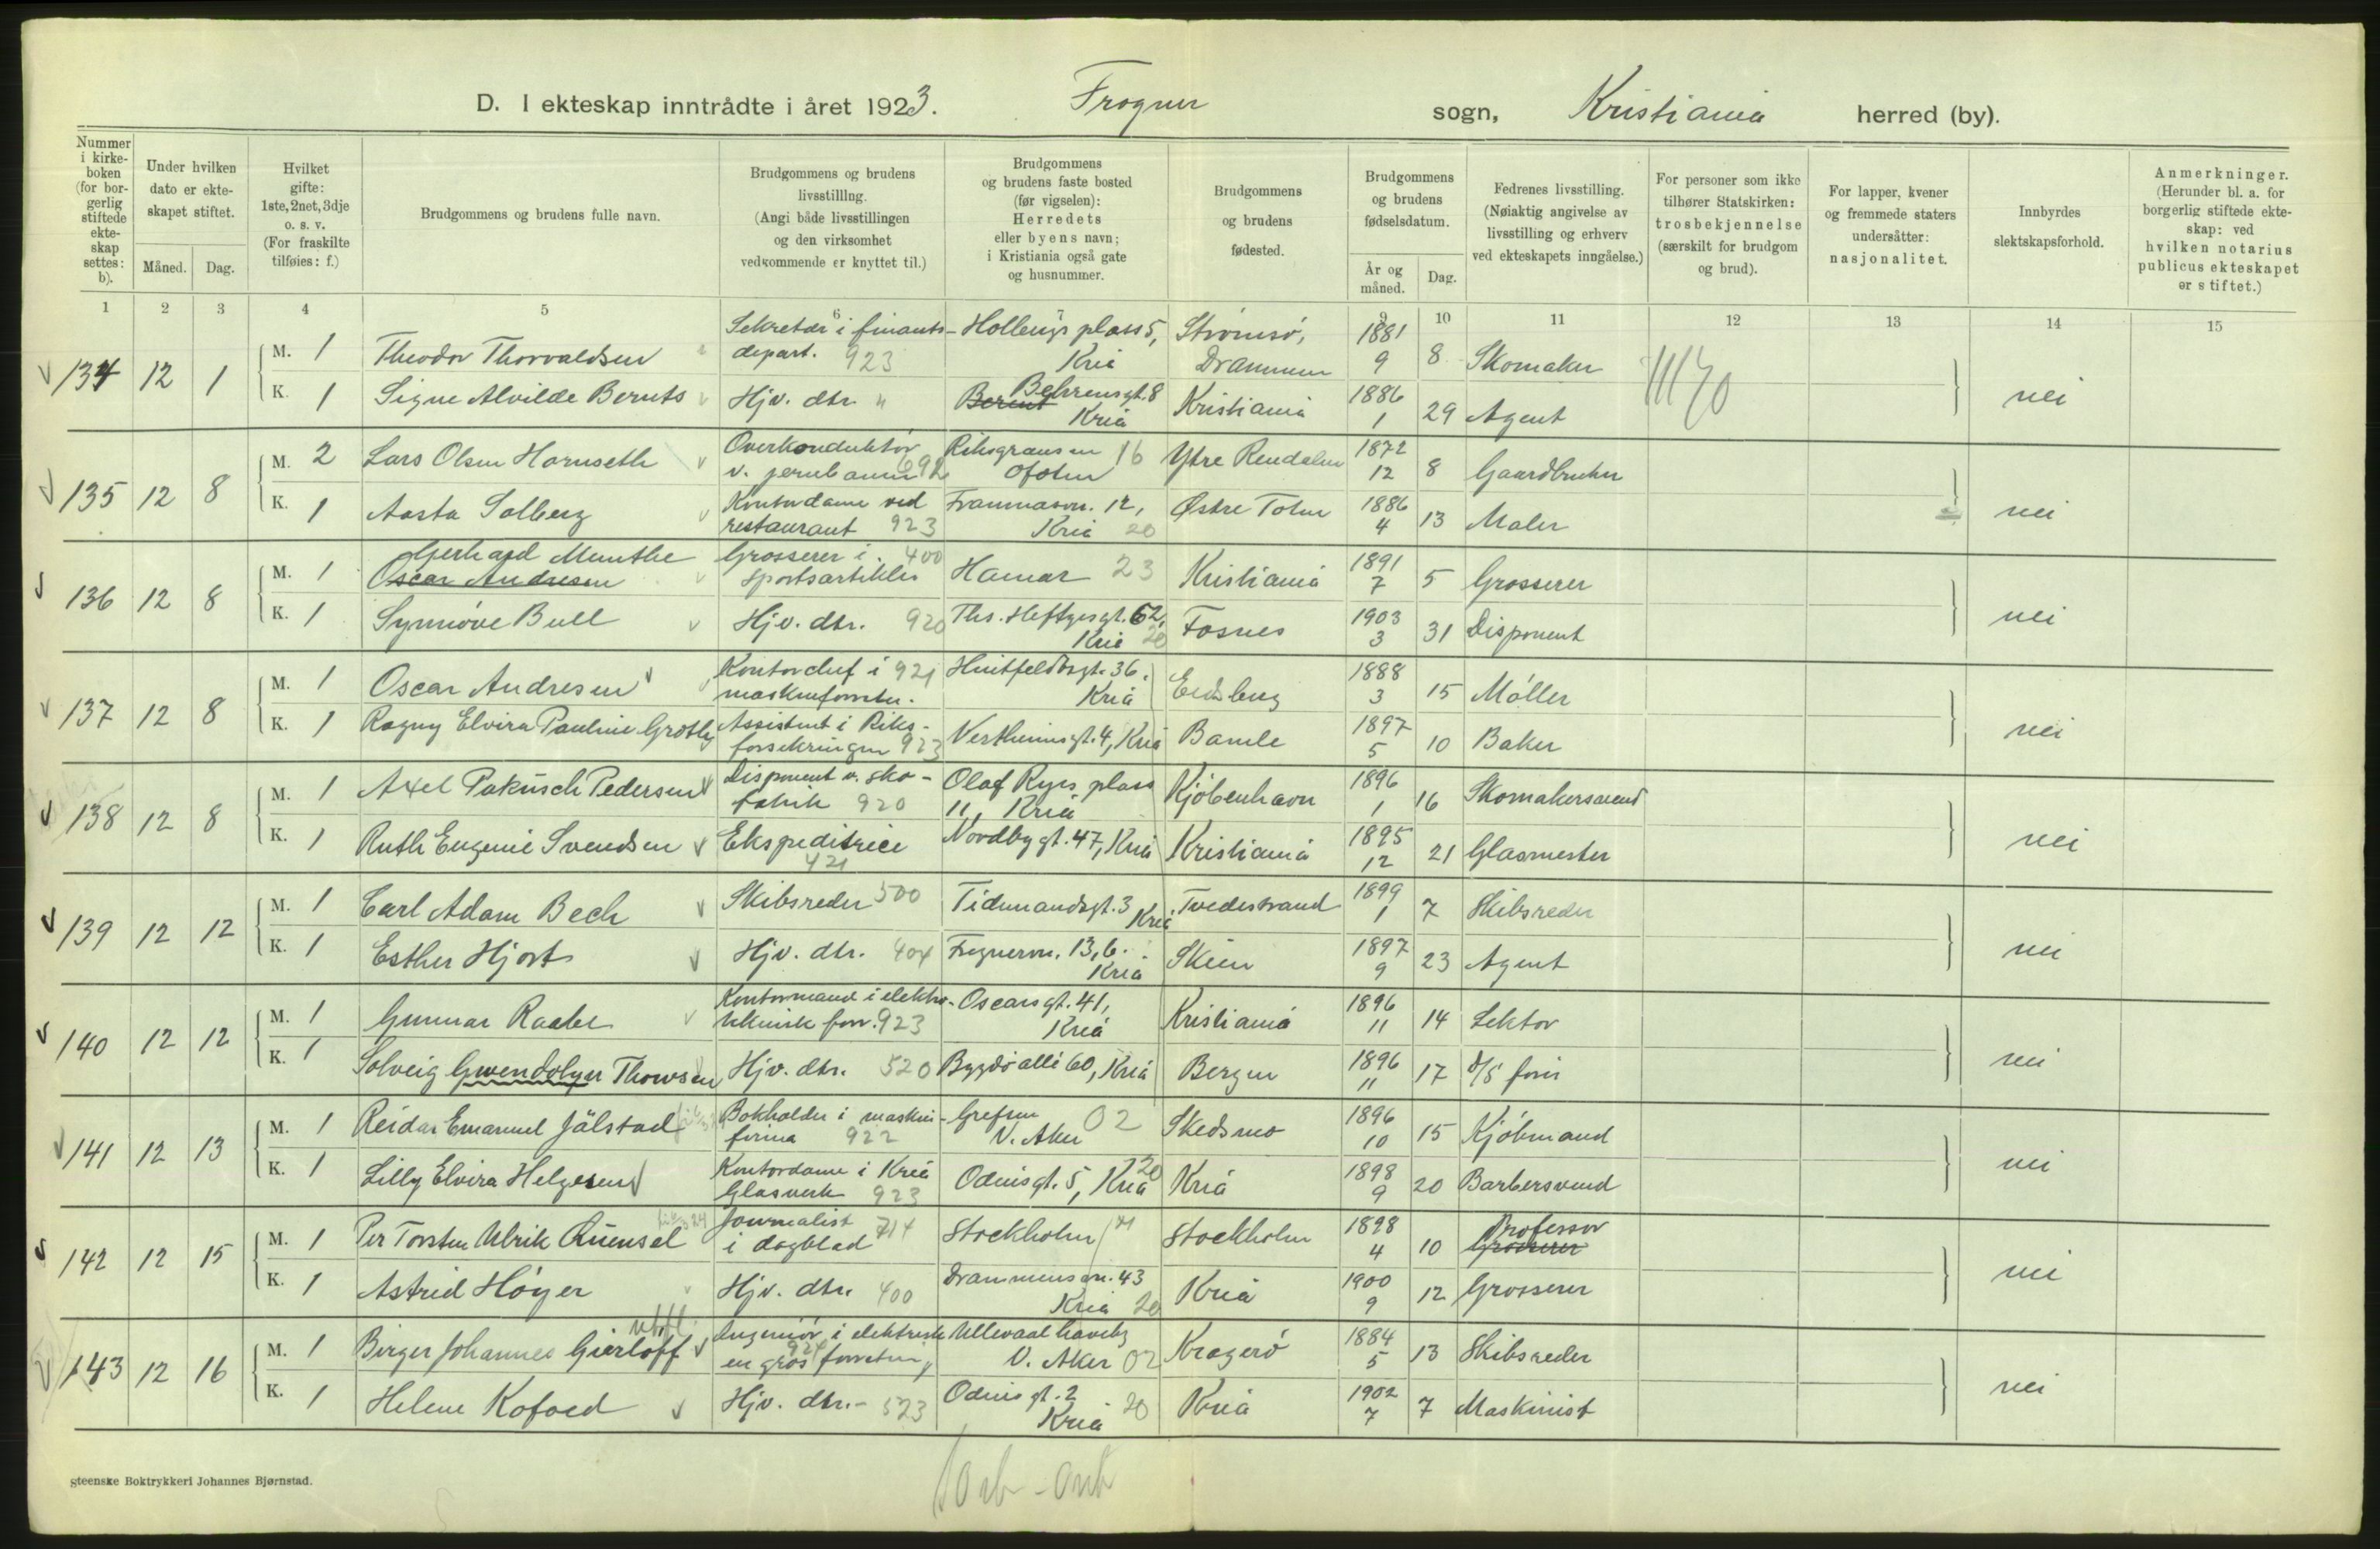 D. I ekteskap inntrådte i året 1923. Frogner sogn, Kristiania herred (by).
Nummer i kirkeboken (for borgerlig stiftede ekteskap settes: b).
Under hvilken dato er ekteskapet stiftet.
Måned. Dag.
Hvilket gifte: 1ste, 2net, 3dje o. s. v. (For fraskilte tilføies: f.)
Brudgommens og brudens fulle navn.
Brudgommens og brudens livsstilling. (Angi både livsstillingen og den virksomhet vedkommende er knyttet til.)
Brudgommens og brudens faste bosted (før vigselen): Herredets eller byens navn; i Kristiania også gate og husnummer.
Brudgommens og brudens fødested.
Brudgommens og brudens fødselsdatum.
År og måned. Dag.
Fedrenes livsstilling. (Nøiaktig angivelse av livsstilling og erhverv ved ekteskapets inngåelse.)
For personer som ikke tilhører Statskirken: trosbekjennelse (særskilt for brudgom og brud).
For lapper, kvener og fremmede staters undersåtter: nasjonalitet.
Innbyrdes slektskapsforhold.
Anmerkninger. (Herunder bl. a. for borgerlig stiftede ekteskap: ved hvilken notarius publicus ekteskapet er stiftet.)
1 2 3 4 5 6 7 9 10 11 12 13 14 15
134 12 1 M. 1 Theodor Thorvaldsen Sekretær i finants-depart. 923 Holbergs plass 5, Kria Strömsö, Drammen 1881 9 8 Skomaker nei
K. 1 Signe Alvilde Bernts Hjv. dtr. " Berent Behrensgt. 8 Kria Kristiania 1886 1 29 Agent
135 12 8 M. 2 Lars Olsen Hornseth Overkonduktör v. jernbanen 292 Riksgrænsen Ofoten 16 Ytre Rendalen 1872 12 8 Gaardbruker nei
K. 1 Aasta Solberg Kontordame ved restaurant 923 Frammason. 12, Kria 20 Østre Toten 1886 4 13 Maler
136 12 8 M. 1 Gerhard Munthe Oscar Andresen Grosserer i sportsartikler 400 Hamar 23 Kristiania 1891 7 5 Grosserer nei
K. 1 Synnöve Bull Hjv. dtr. 920 Ths. Heftyesgt. 62, Kria 20 Fosnes 1903 3 31 Disponent
137 12 8 M. 1 Oscar Andresen Kontorchef i maskinforretn. 921 Huitfeldtsgt. 36. Kria Eidsberg 1888 3 15 Möller nei
K. 1 Ragny Elvira Pauline Gröthy Assistent i Riksforsekringen 923 Vertheimsgt. 4, Kria Bamle 1897 5 10 Baker
138 12 8 M. 1 Axel Pakusch Pedersen Disponent v. skofabrik 920 Olaf Ryes plass 11, Kria Kjöbenhavn 1896 1 16 Skomakersvend nei
K. 1 Ruth Eugenie Svendsen Ekspeditrice 421 Nordbygt. 47, Kria Kristiania 1895 12 21 Glasmester
139 12 12 M. 1 Carl Adam Bech Skibsreder 500 Tidemandsgt. 3 Kria Tvedestrand 1899 1 7 Skibsreder nei
K. 1 Esther Hjort Hjv. dtr. 404 Frognervn. 13, b. Kria Skien 1897 9 23 Agent
140 12 12 M. 1 Gunnar Raabe Kontormand i elektroteknisk forr. 923 Oscarsgt. 41, Kria Kristiania 1896 11 14 Lektor nei
K. 1 Solveig Gwendolyn Thowsen Hjv. dtr. 520 Bygdö allé 60, Kria Bergen 1896 11 17
141 12 13 M. 1 Reidar Emanuel Jälstad Bokholder i maskinfirma 922 Grefsen V. Aker 02 Skedsmo 1896 10 15 Kjöbmand nei
K. 1 Lilly Elvira Helgesen Kontordame i Kria Glasverk 923 Odinsgt. 5, Kria 20 Kria 1898 9 20 Barbersvend
142 12 15 M. 1 Per Torsten Ulrik Quensel Journalist i dagblad 714 Stockholm Stockholm 1898 4 10 Professor Grosserer nei
K. 1 Astrid Höyer Hjv. dtr. 400 Drammensvn. 43 Kria 20 Kria 1900 9 12 Grosserer
143 12 16 M. 1 Birger Johannes Gierløff Ingeniör i elektrisk en gros forretning 921 Ullevaal haveby V. Aker 02 Kragerö 1884 5 13 Skibsreder nei
K. 1 Helene Kofoed Hjv. dtr. - 523 Odinsgt. 2 Kria 20 Kria 1902 7 7 Maskinist
gteenske Boktrykkeri Johannes Bjørnstad.